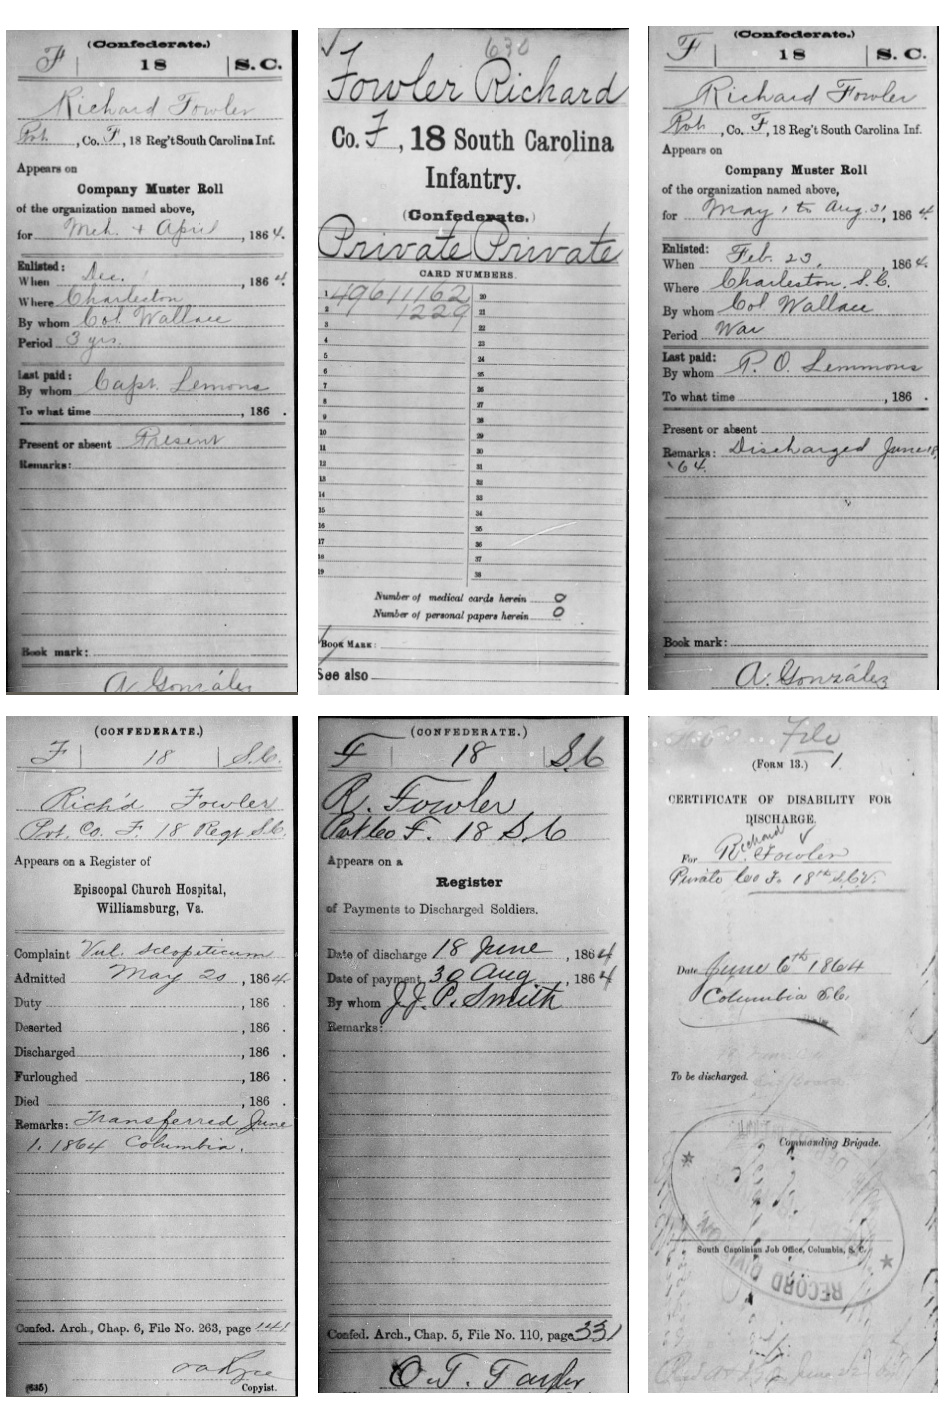 (Confederate.)
F | 18 | S. C.
Richard Fowler
Pvt., Co. F, 18 Reg't South Carolina Inf.
Appears on
Company Muster Roll
of the organization named above,
for Mch. & April, 1864.
Enlisted:
When Dec., 1864.
Where Charleston
By whom Col. Wallace
Period 3 yrs.
Last paid:
By whom Capt. Lemons
To what time , 186 .
Present or absent Present
Remarks:
Book mark:
A. González
630
Fowler Richard
Co. F, 18 South Carolina
Infantry.
(Confederate.)
Private Private
CARD NUMBERS.
1 49611162 20
2 1229 21
3 22
4 23
5 24
6 25
7 26
8 27
9 28
10 29
11 30
12 31
13 32
14 33
15 34
16 35
17 36
18 37
19 38
Number of medical cards herein 0
Number of personal papers herein 0
BOOK MARK:
See also
(Confederate.)
F | 18 | S. C.
Richard Fowler
Pvt., Co. F, 18 Reg't South Carolina Inf.
Appears on
Company Muster Roll
of the organization named above,
for May 1 to Aug. 31, 1864.
Enlisted:
When Feb. 23, 1864.
Where Charleston, S.C.
By whom Col Wallace
Period War
Last paid:
By whom P. O. Lemmons
To what time , 186 .
Present or absent
Remarks: Discharged June 18,
'64.
Book mark:
A. González
(CONFEDERATE.)
F | 18 | S.C.
Rich'd Fowler
Pvt. Co. F. 18 Regt S.C.
Appears on a Register of
Episcopal Church Hospital,
Williamsburg, Va.
Complaint Vul. sclopiticum
Admitted May 20, 1864.
Duty , 186 .
Deserted , 186 .
Discharged , 186 .
Furloughed , 186 .
Died , 186 .
Remarks: Transferred June
1. 1864 Columbia.
Confed. Arch., Chap. 6, File No. 263, page 141
(635)
Copyist.
(CONFEDERATE.)
F | 18 | S.C
R. Fowler
Pvt Co F. 18 S.C
Appears on a
Register
of Payments to Discharged Soldiers.
Date of discharge 18 June, 1864
Date of payment 30 Aug, 1864
By whom J.J. P. Smith
Remarks:
Confed. Arch., Chap. 5, File No. 110, page 331
File
(FORM 13.) 1.
CERTIFICATE OF DISABILITY FOR
DISCHARGE.
Richard
For R. Fowler
Private Co F. 18th S.C.V.
Date June 6th 1864
Columbia S.C.
To be discharged.
Commanding Brigade.
South Carolinian Job Office, Columbia, S. C.
RECORD DIVISION